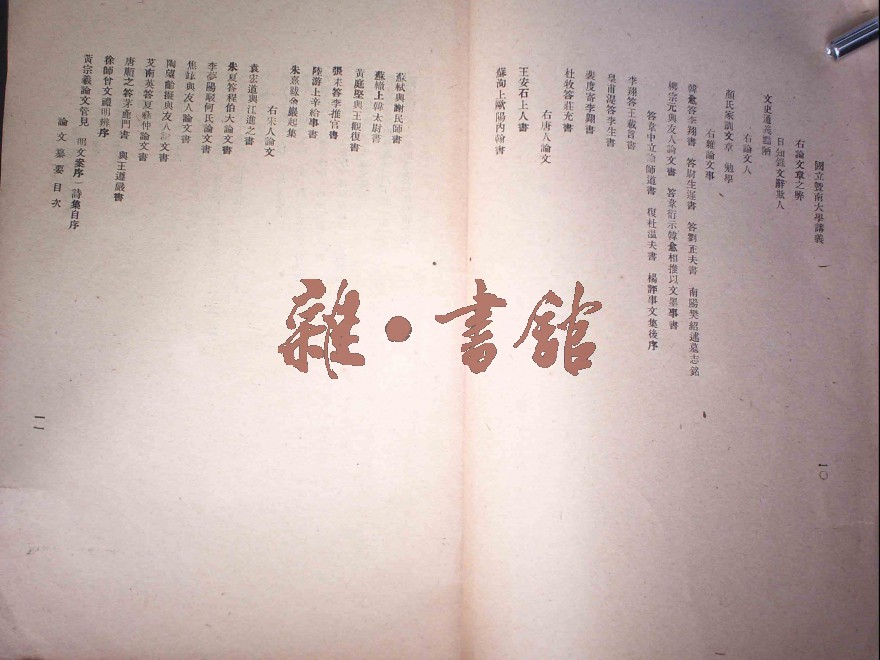 國立暨南大學講義 一
一〇
右論文章之弊
日知錄文辭欺人
文史通義黠陋
右論文人
顏氏家訓文章 勉學
右雜論文事
韓愈答李翔書 答尉生遲書 答劉正夫書 南陽樊紹述墓志銘
柳宗元與友人論文書 答韋珩示韓愈相推以文墨事書
答韋中立論師道書 復杜温夫書 楊評事文集後序
李翔答王載言書
皇甫湜答李生書
裴度寄李翱書
杜牧答莊充書
右唐人論文
王安石上人書
蘇洵上歐陽内翰書
蘇軾與謝民師書
蘇轍上韓太尉書
黃庭堅與王觀復書
張耒答李推官書
陸游上辛給事書
朱熹跋余巖起集
右宋人論文
袁宏道與江進之書
朱夏答程伯大論文書
李夢陽駁何氏論文書
焦竑與友人論文書
陶望齡擬與友人論文書
艾南英答夏彝仲論文書
唐順之答茅鹿門書 與王道嚴書
徐師曾文禮明辨序
黃宗羲論文管見 明文案序 詩集自序
論文纂要目次
一一
雜·書舘